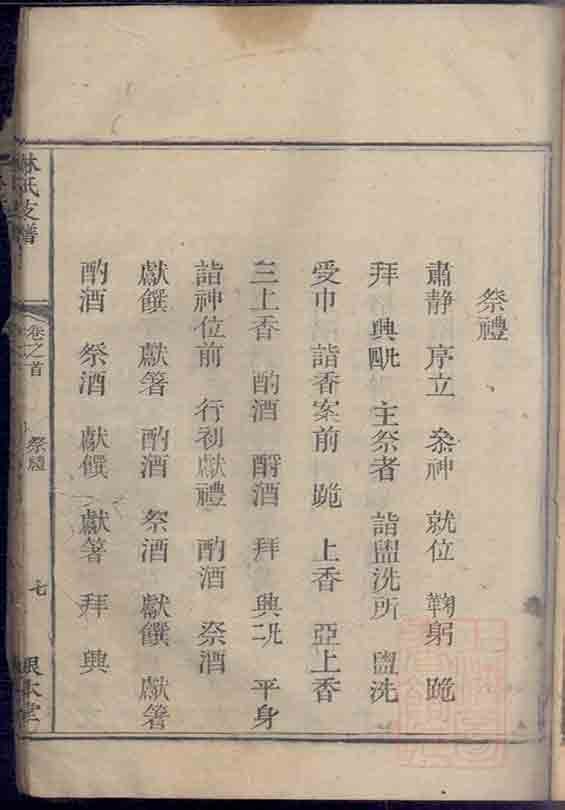 祭禮
肅静 序立 叅神 就位 鞠躬 跪
拜 興 主祭者 詣盥洗所 盥洗
受巾 詣香案前 跪 上香 亞上香
三上香 酌酒 酹酒 拜 興 平身
詣神位前 行初獻禮 酌酒 祭酒
獻饌 獻箸 酌酒 祭酒 獻饌 獻箸
酌酒 祭酒 獻饌 獻箸 拜 興
林氏支譜
卷之首
祭禮
七
本堂